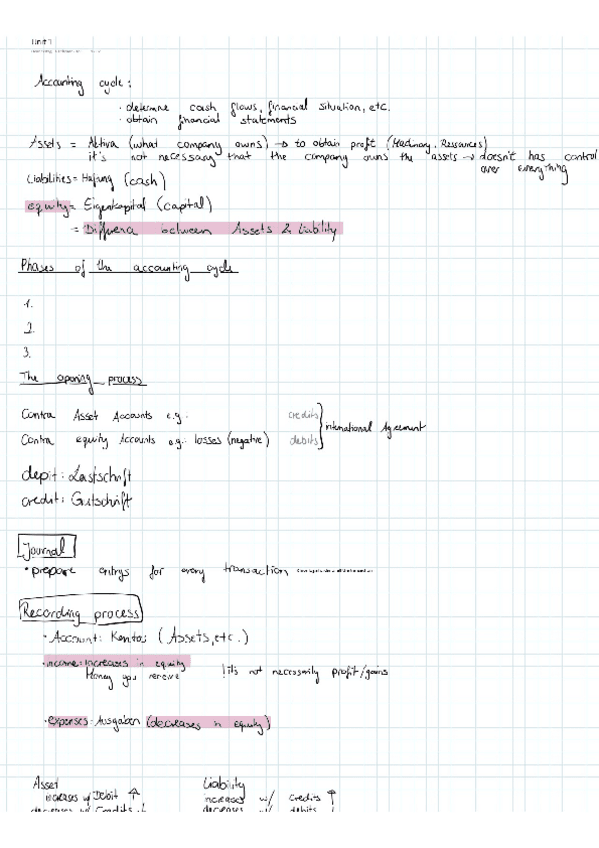 Unit 1
Accounting cycle:
· determine cash flows, financial situation, etc.
· obtain financial statements
Assets = Aktiva (what company owns) → to obtain profit (Machinary, Ressources)
it's not necessary that the company owns the assets → doesn't has control
over everything
Liabilities = Haftung (cash)
equity = Eigenkapital (capital)
= Differenz between Assets & Liability
Phases of the accounting cycle
1.
2.
3.
The opening process
Contra Asset Accounts e.g. credits
international Agreement
Contra equity Accounts e.g.: losses (negative) debits
depit: Lastschrift
credit: Gutschrift
Journal
· prepare entrys for every transaction
Recording process
· Account: Kontos (Assets, etc.)
· income: increases in equity
Money you receive !it's not necessarily profit/gains
· expenses: Ausgaben (decreases in equity)
Asset Liability
increases w/ Debit ↑ increases w/ credits ↑
decreases w/ Credits ↓ decreases w/ debits